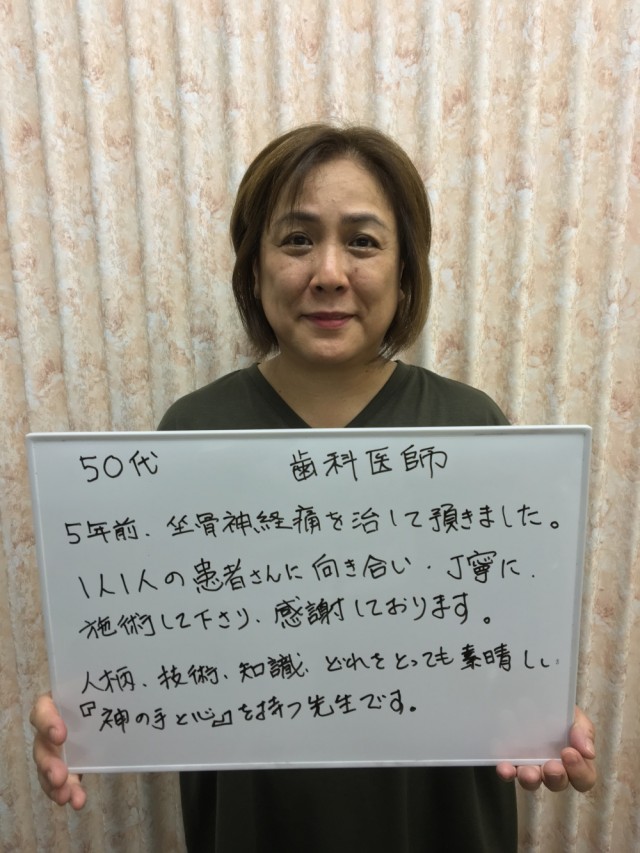 50代 歯科医師
5年前、坐骨神経痛を治して頂きました。
1人1人の患者さんに向き合い、丁寧に、
施術して下さり、感謝しております。
人柄、技術、知識、どれをとっても素晴しい
『神の手と心』を持つ先生です。